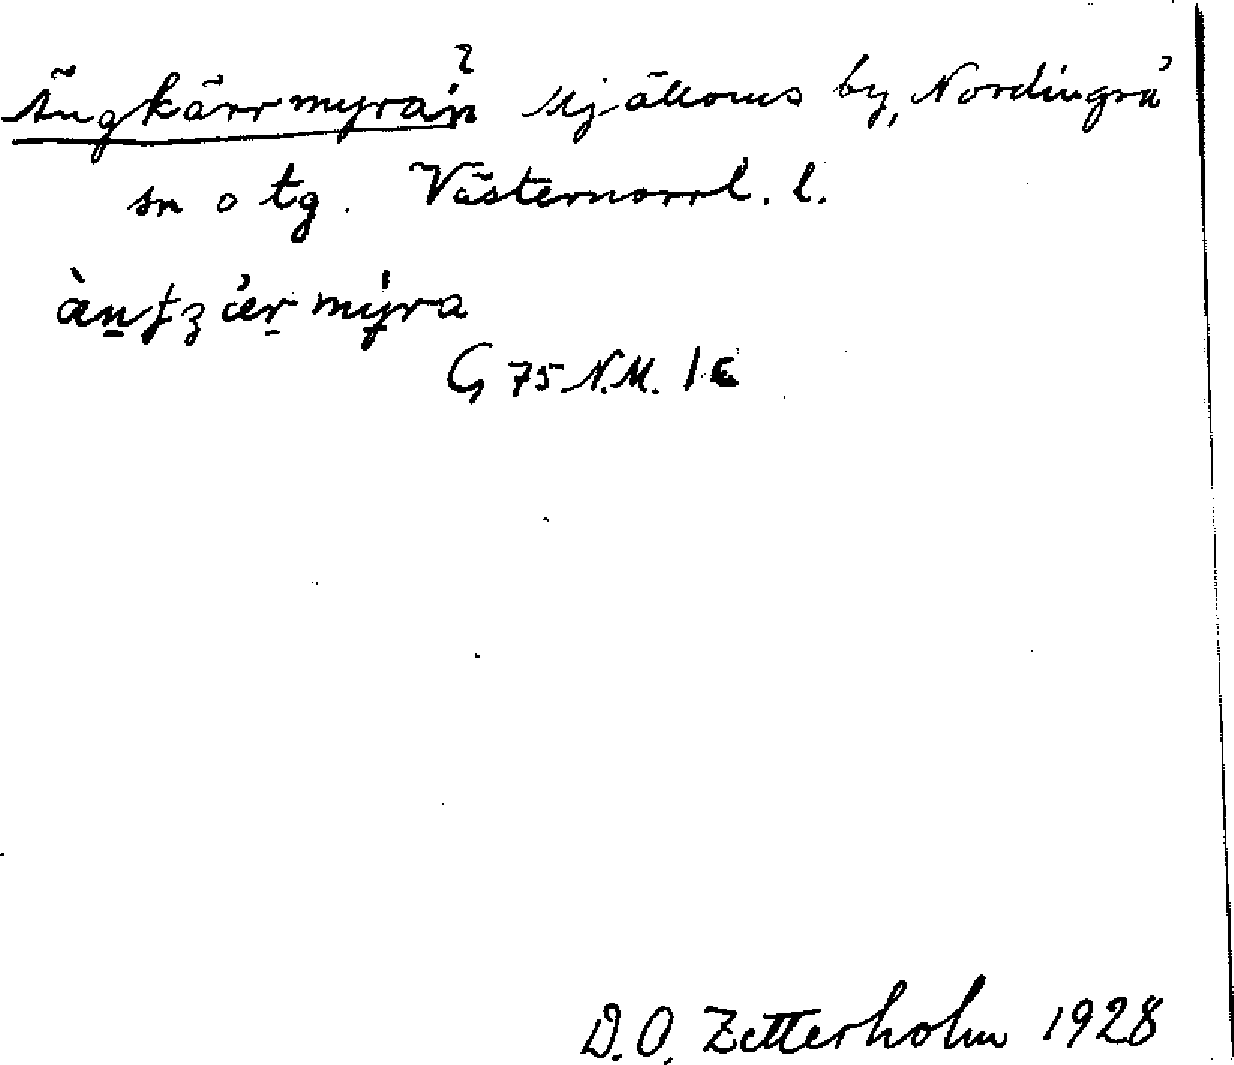 Ängkärrmyran? Mjälloms by, Nordingrå
sn o tg. Västernorrl. l.
myra
G 75 N.M.
D.O. Zetterholm 1928